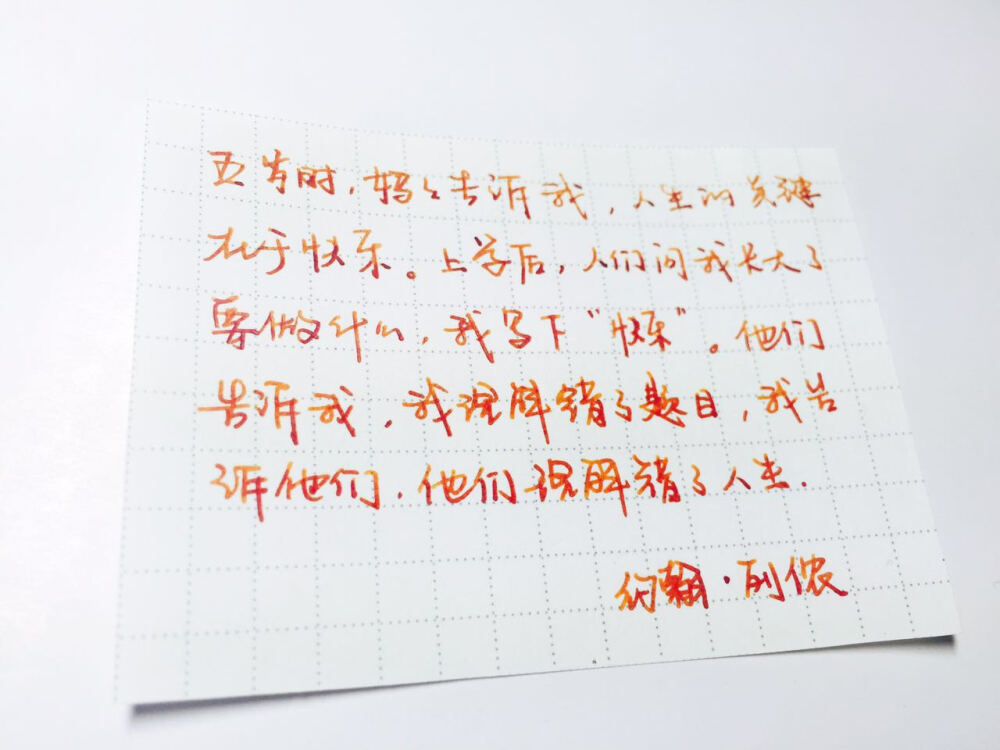 五岁时，妈妈告诉我，人生的关键
在于快乐。上学后，人们问我长大了
要做什么，我写下“快乐”。他们
告诉我，我理解错了题目，我告
诉他们，他们理解错了人生.
约翰·列侬